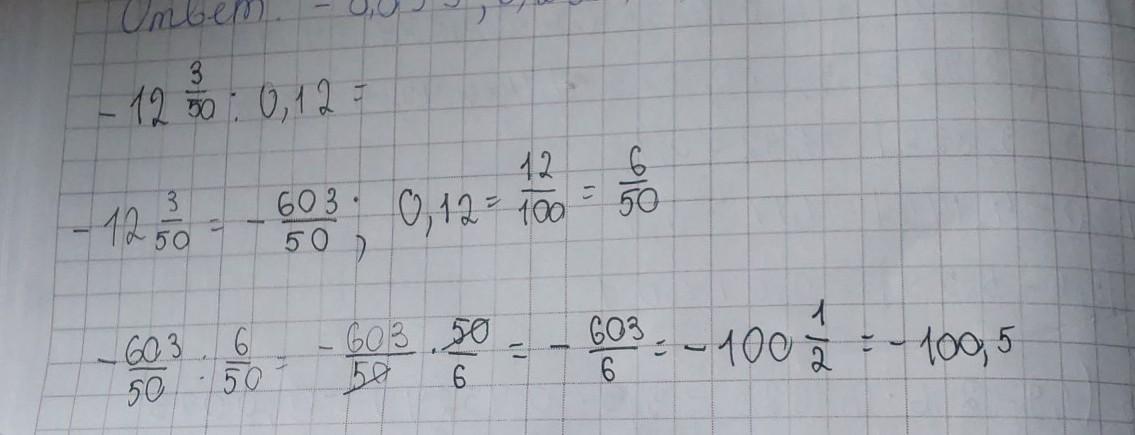 Ответ.
-12 3/50 : 0,12 =
-12 3/50 = - 603/50 ; 0,12 = 12/100 = 6/50
- 603/50 : 6/50 = - 603/50 · 50/6 = - 603/6 = - 100 1/2 = - 100,5